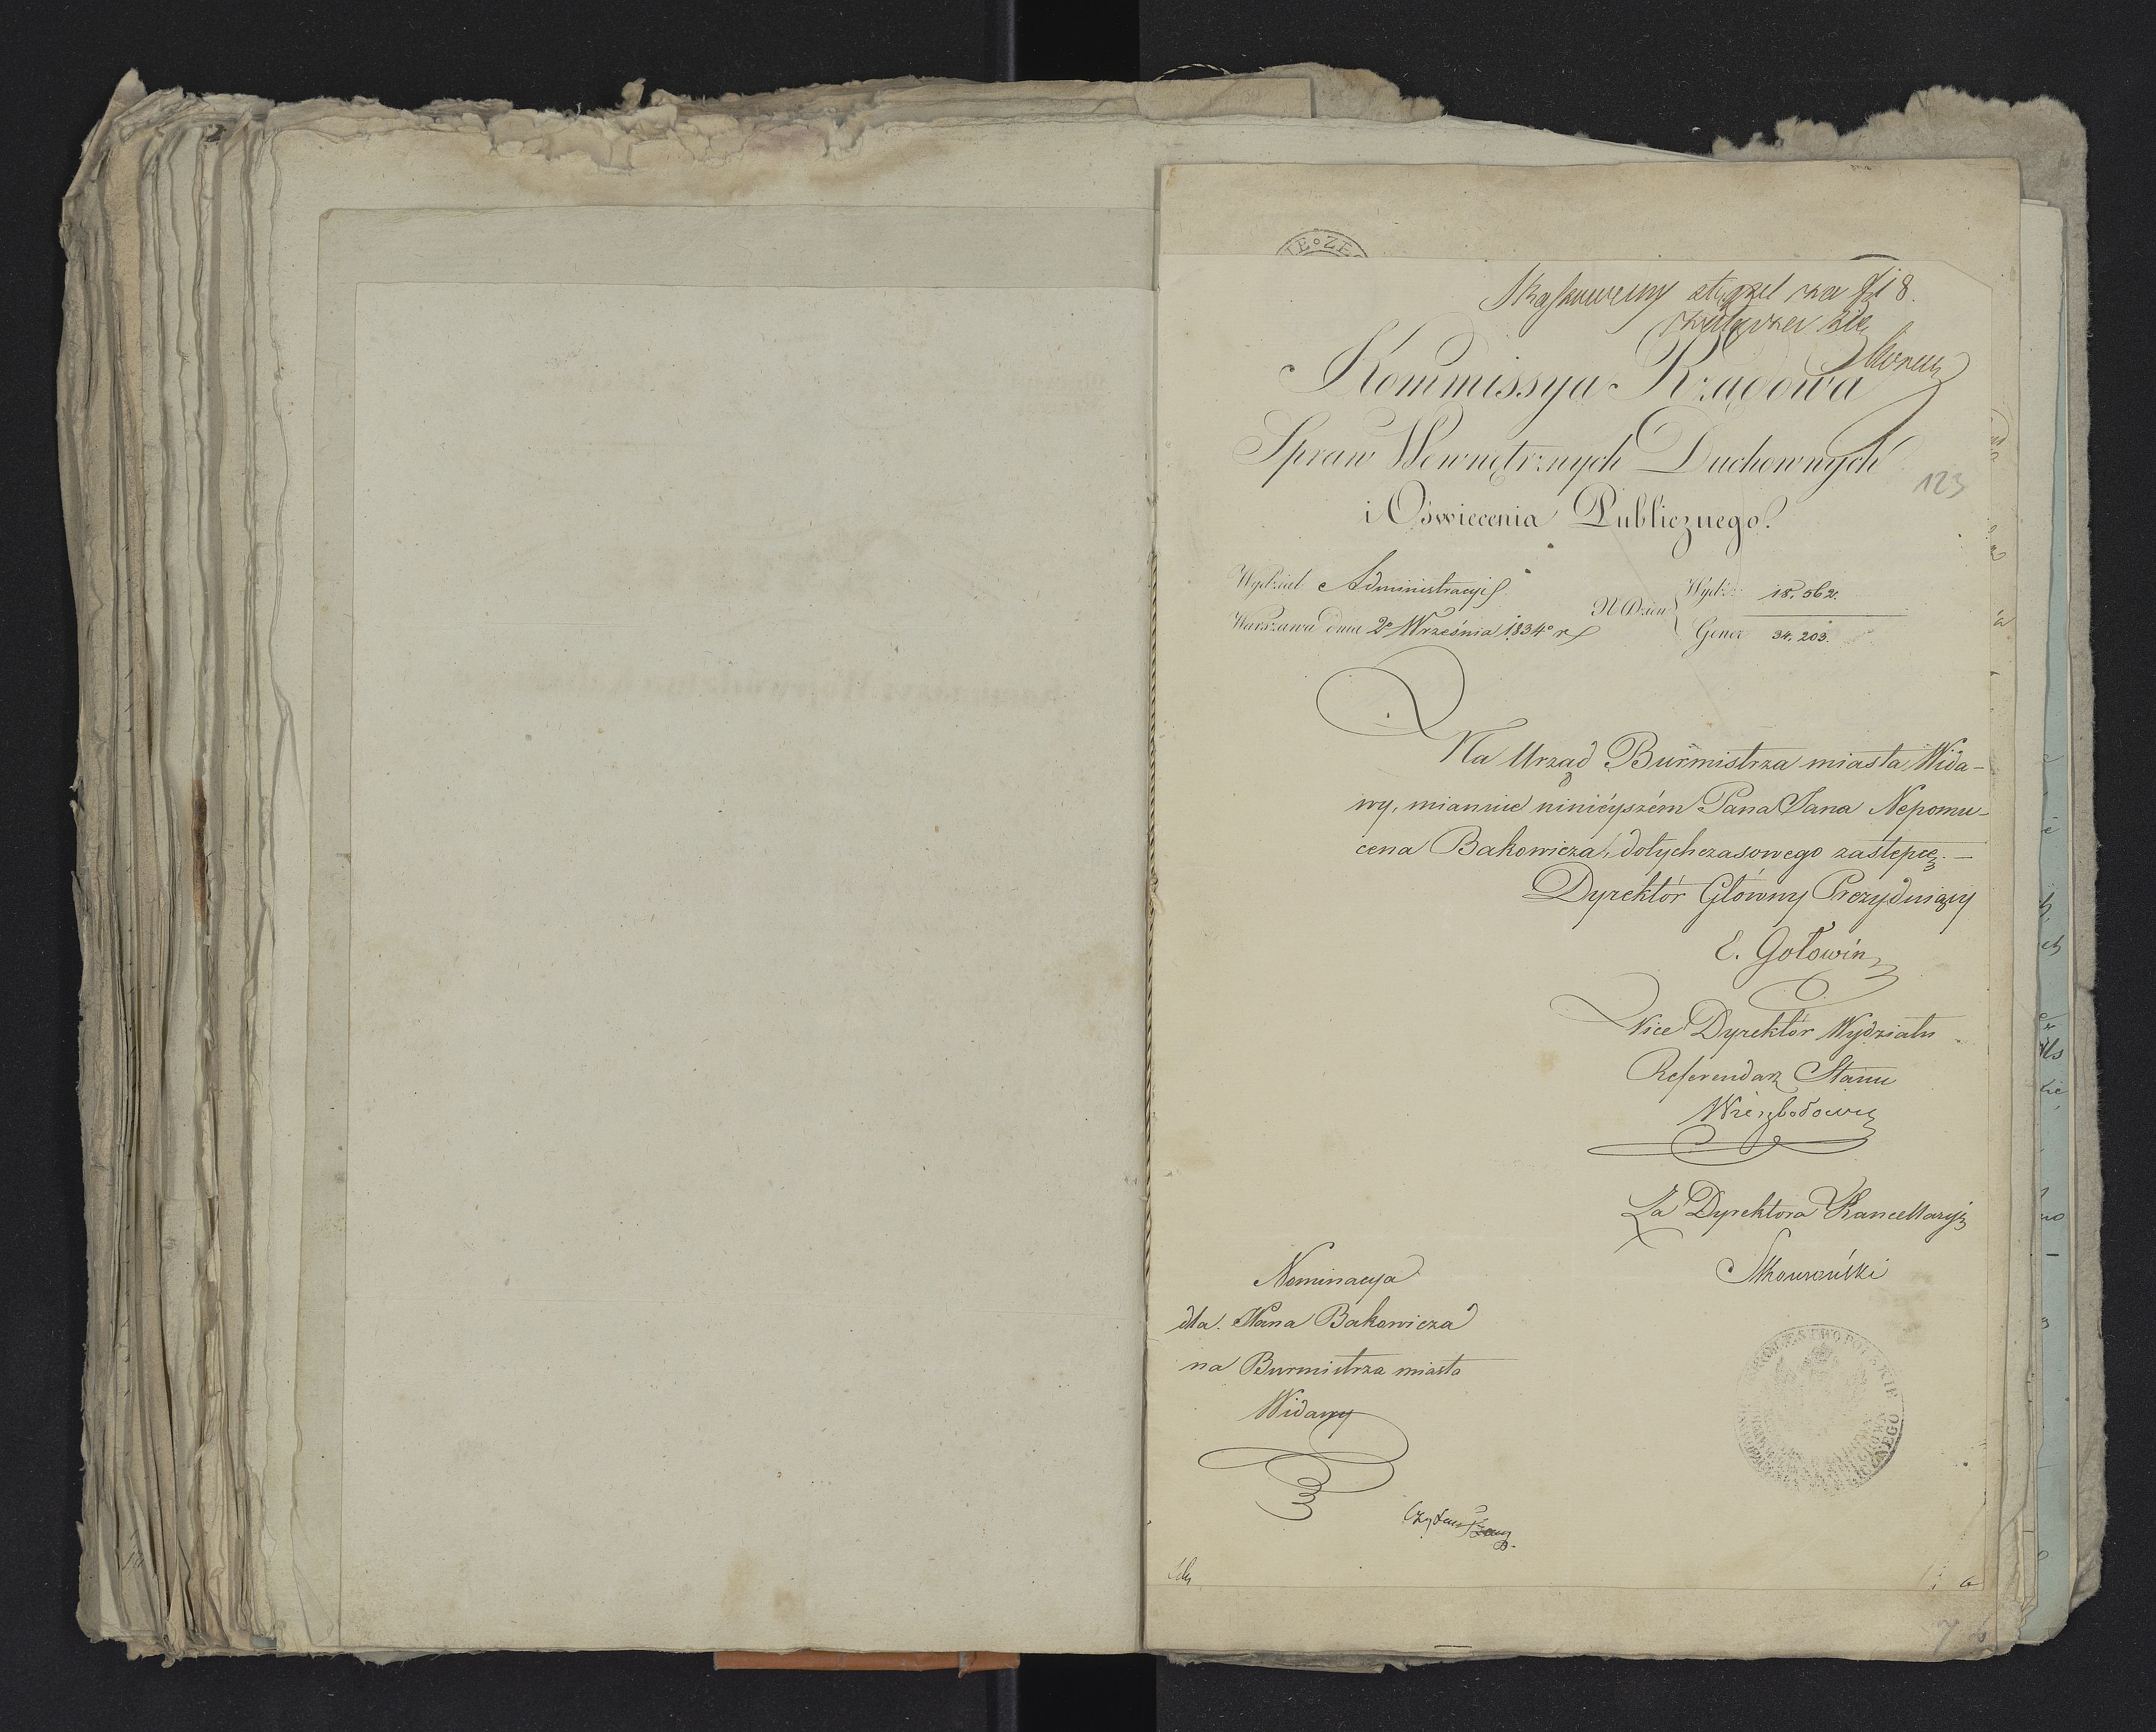 Skassowany stępel na Zł 8.
załącza się
Kommissya Rządowa
Spraw Wewnętrznych Duchownych
i Oświecenia Publicznego.
123
Wydział Administracyi
Warszawa dnia 2o Września 1834o r
N Dzien
Wydz: 18.562.
Gener 34.203.
Na Urząd Burmistrza miasta Wida-
wy, mianuie ninieyszém Pana Jana Nepomu-
cena Bakowicza, dotychczasowego zastępcę. —
Dyrektór Główny Prezyduiący
E. Gołowin
Vice Dyrektór Wydziału
Referendarz Stanu
Za Dyrektora Kancellaryi
Nominacya
dla Jana Bakowicza
na Burmistrza miasta
Widawy
KRÓLESTWO POLSKIE